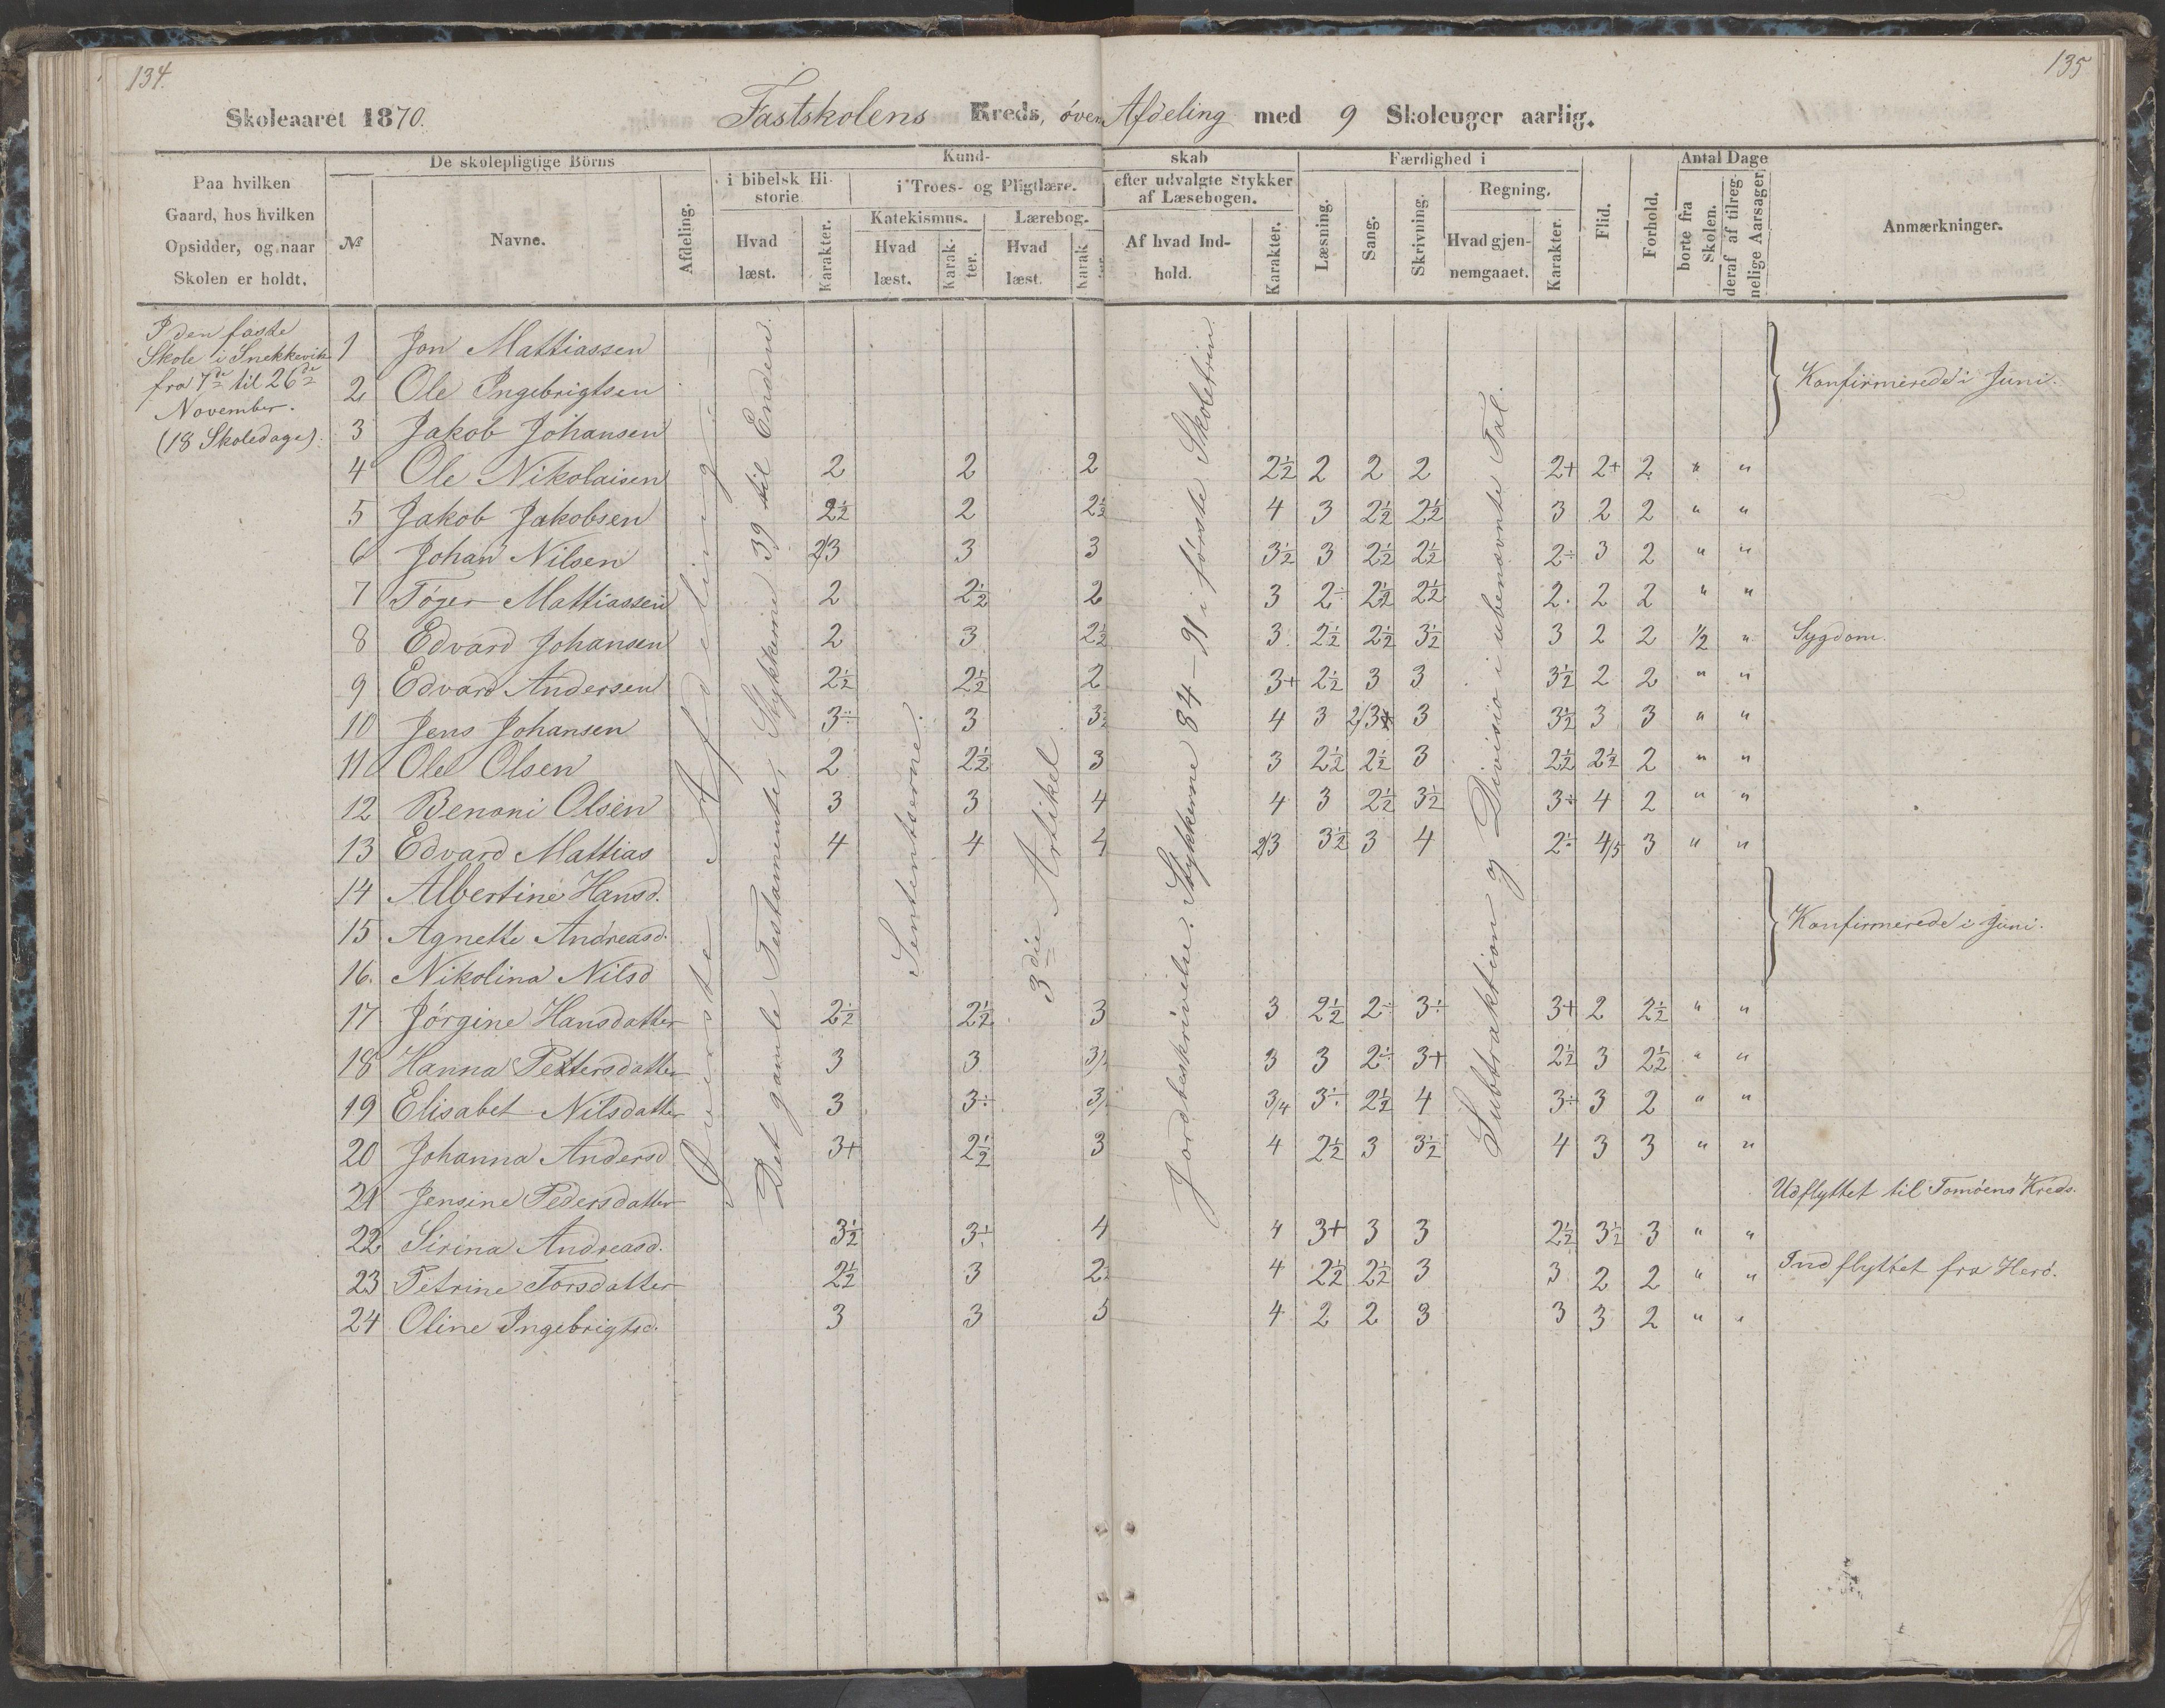 134.
135
Skoleaaret 1870. Fastskolens Kreds, øvre Afdeling med 9 Skoleuger aarlig.
Paa hvilken Gaard, hos hvilken Opsidder, og naar Skolen er holdt.
De skolepligtige Börns
№
Navne.
Afdeling.
Kundskab
i bibelsk Historie
Hvad læst.
Karakter.
i Troes- og Pligtlære.
Katekismus.
Hvad læst.
Karakter.
Lærebog.
Hvad læst.
Karak
efter udvalgte Stykker af Læsebogen.
Af hvad Indhold.
Karakter.
Færdighed i
Læsning.
Sang.
Skrivning.
Regning.
Hvad gjennemgaaet.
Karakter.
Flid.
Forhold.
Antal Dage
borte fra Skolen.
deraf af tilregnelige Aarsager
Anmærkninger.
I den faste
Skole i Snekkevik
fra 7de til 26de
November.
(18 Skoledage).
Øverste Afdeling.
Det gamle Testamente, Stykkerne 39 til Enden.
Sententserne.
3die Artikel
Jordbeskrivelse. Stykkerne 84-91 i første Skoletrin.
Subtraktion og Divisio i ubenævnte Tal.
1 Jon Mattiassen
2 Ole Ingebrigtsen Konfirmerede i Juni.
3 Jakob Johansen
4 Ole Nikolaisen 2 2 2 2½ 2 2 2 2+ 2+ 2 " "
5 Jakob Jakobsen 2½ 2 2½ 4 3 2½ 2½ 3 2 2 " "
6 Johan Nilsen 2/3 3 3 3½ 3 2½ 2½ 2÷ 3 2 " "
7 Tøger Mattiassen 2 2½ 2 3 2÷ 2½ 2½ 2. 2 2 " "
8 Edvard Johansen 2 3 2½ 3 2½ 2½ 3½ 3 2 2 ½ " Sygdom.
9 Edvard Andersen 2½ 2½ 2 3+ 2½ 3 3 3½ 2 2 " "
10 Jens Johansen 3÷ 3 3½ 4 3 2/3+ 3 3½ 3 3 " "
11 Ole Olsen 2 2½ 3 3 2½ 2½ 3 2½ 2½ 2 " "
12 Benoni Olsen 3 3 4 4 3 2½ 3½ 3÷ 4 2 " "
13 Edvard Mattias 4 4 4 2/3 3½ 3 4 2÷ 4/5 3 " "
14 Albertine Hansd.
15 Agnette Andreasd. Konfirmerede i Juni.
16. Nikolina Nilsd
17 Jørgine Hansdatter 2½ 2½ 3 3 2½ 2÷ 3÷ 3+ 2 2½ " "
18 Hanna Pettersdatter 3 3 3/ 3 3 2÷ 3+ 2½ 3 2½ " "
19 Elisabet Nilsdatter 3 3÷ 3/ 3/4 3÷ 2½ 4 3÷ 3 2 " "
20 Johanna Andersd 3+ 2½ 3 4 2½ 3 3½ 4 3 3 " "
21 Jensine Pedersdatter Udflyttet til Tomøens Kreds.
22 Sirina Andreasd. 3½ 3÷ 4 4 3+ 3 3 2½ 3½ 3 " "
23 Petrine Torsdatter 2½ 3 2½ 4 2½ 2½ 3 3 2 2 " " Indflyttet fra Herø.
24 Oline Ingebrigtsd. 3 3 5 4 2 2 3 3 3 2 " "